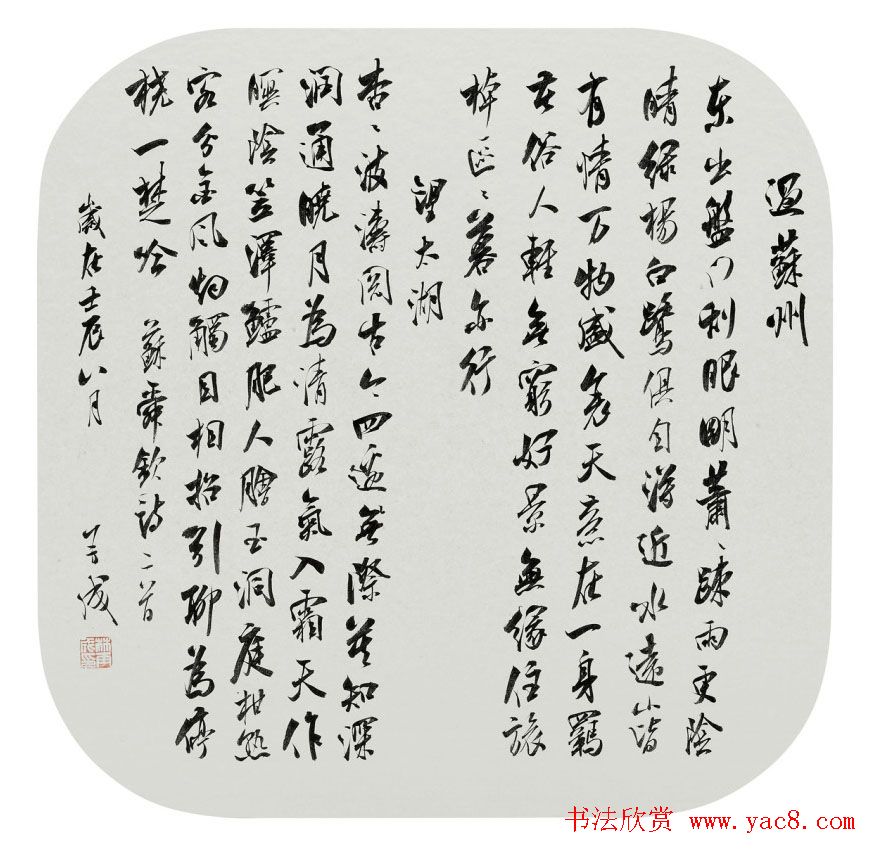 過蘇州
東出盤门刮眼明蕭〻疎雨更陰
晴緑楊白鷺俱自得近水遠山皆
有情万物盛衰天意在一身羈
苦俗人輕無窮好景無緣住旅
棹區〻暮亦行
望太湖
杳〻波濤閱古今四邊無際莫知深
潤通曉月為清露氣入霜天作
暝陰笠澤鱸肥人膾玉洞庭柑熟
客分金風烟觸目相招引聊為停
橈一楚吟 蘇舜欽詩二首
歲在壬辰八月 成
书法欣赏 www.yac8.com